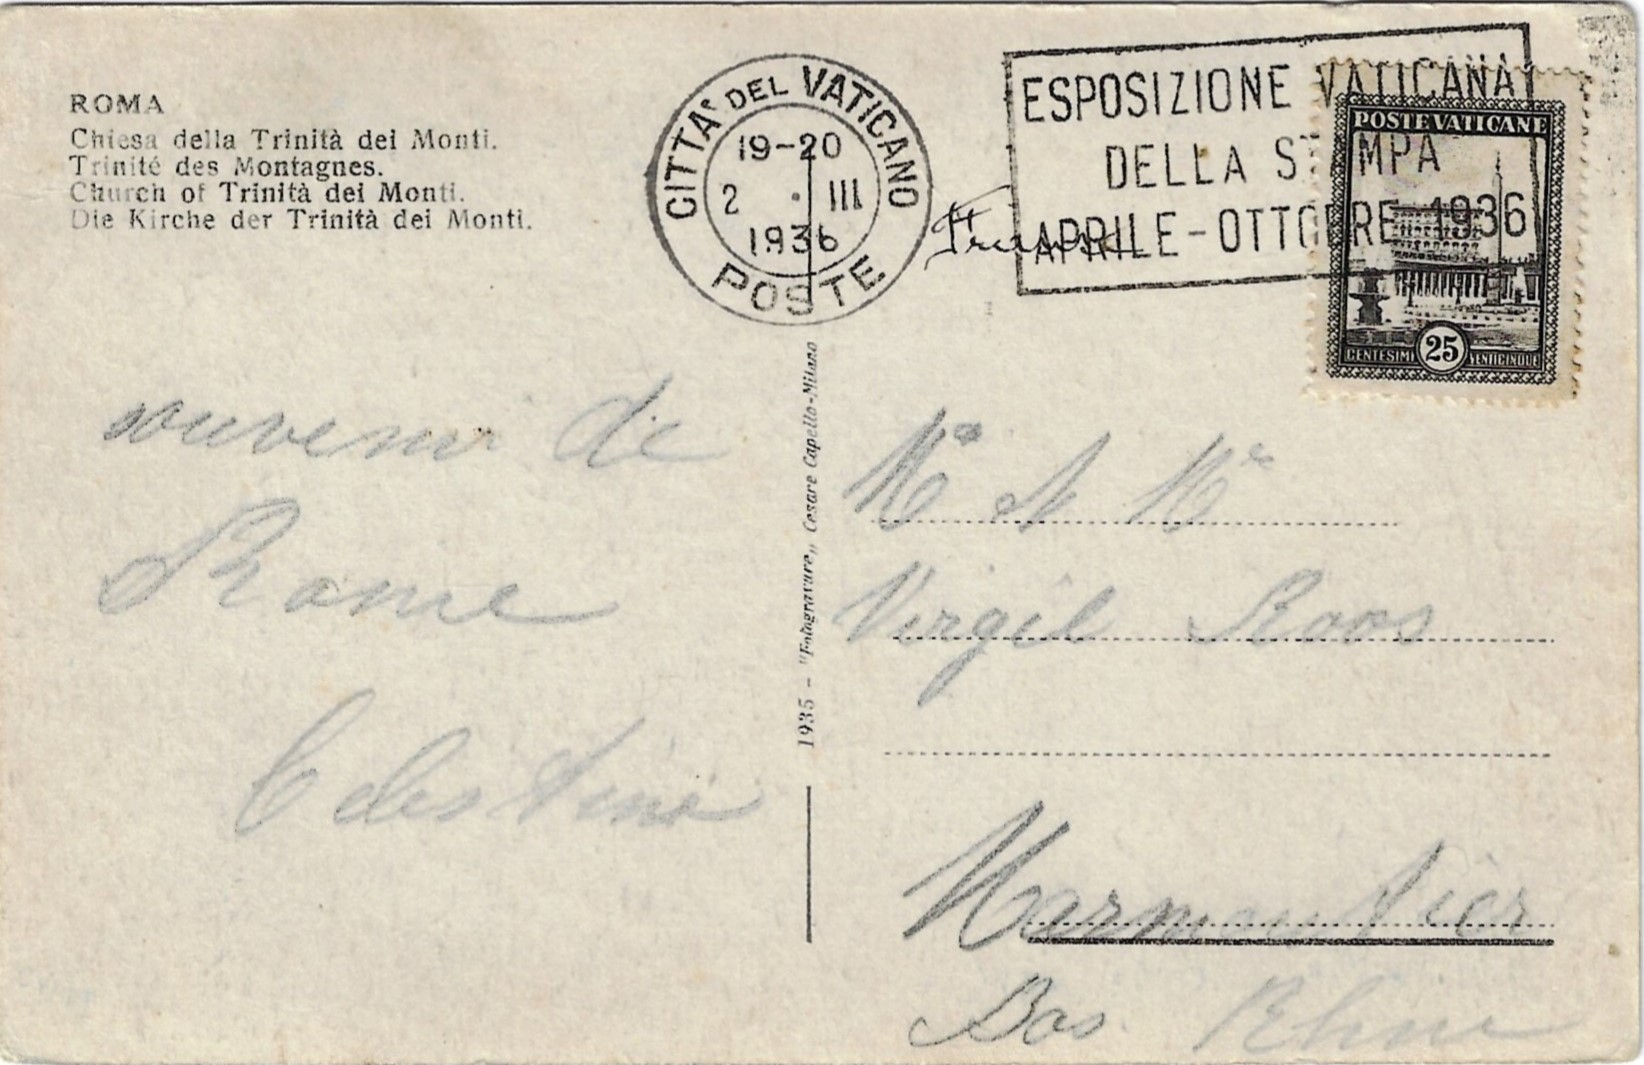 ROMA
Chiesa della Trinità dei Monti.
Trinité des Montagnes.
Church of Trinità dei Monti.
Die Kirche der Trinità dei Monti.
CITTA' DEL VATICANO
19-20
2 · III
1936
POSTE
ESPOSIZIONE VATICANA
DELLA STAMPA
APRILE-OTTOBRE 1936
POSTE VATICANE
CENTESIMI 25 VENTICINQUE
souvenir de
Rome
Celestine
1935 - "Fotogravure„ Cesare Capello-Milano
Virgil Roos
Marmoutier
Bas Rhin